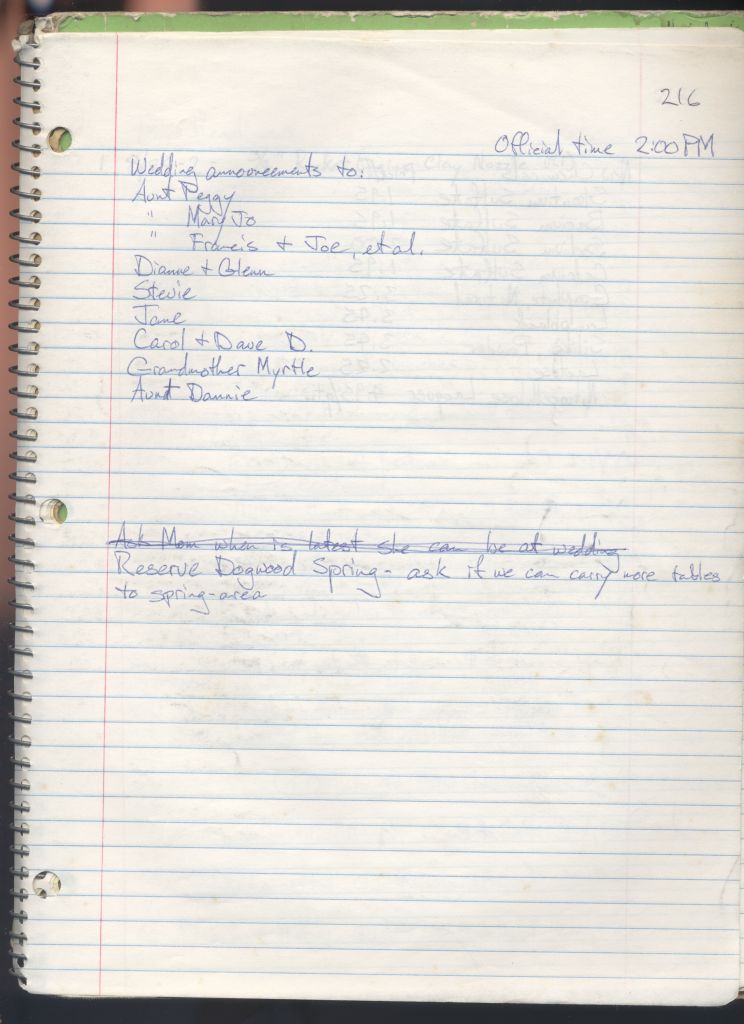 216
Official time 2:00 PM
Wedding announcements to:
Aunt Peggy
" Mary Jo
" Francis + Joe, et al.
Dianne + Glenn
Stevie
Jane
Carol + Dave D.
Grandmother Myrtle
Aunt Dannie
Ask Mom when is latest she can be at wedding
Reserve Dogwood Spring - ask if we can carry more tables
to spring-area